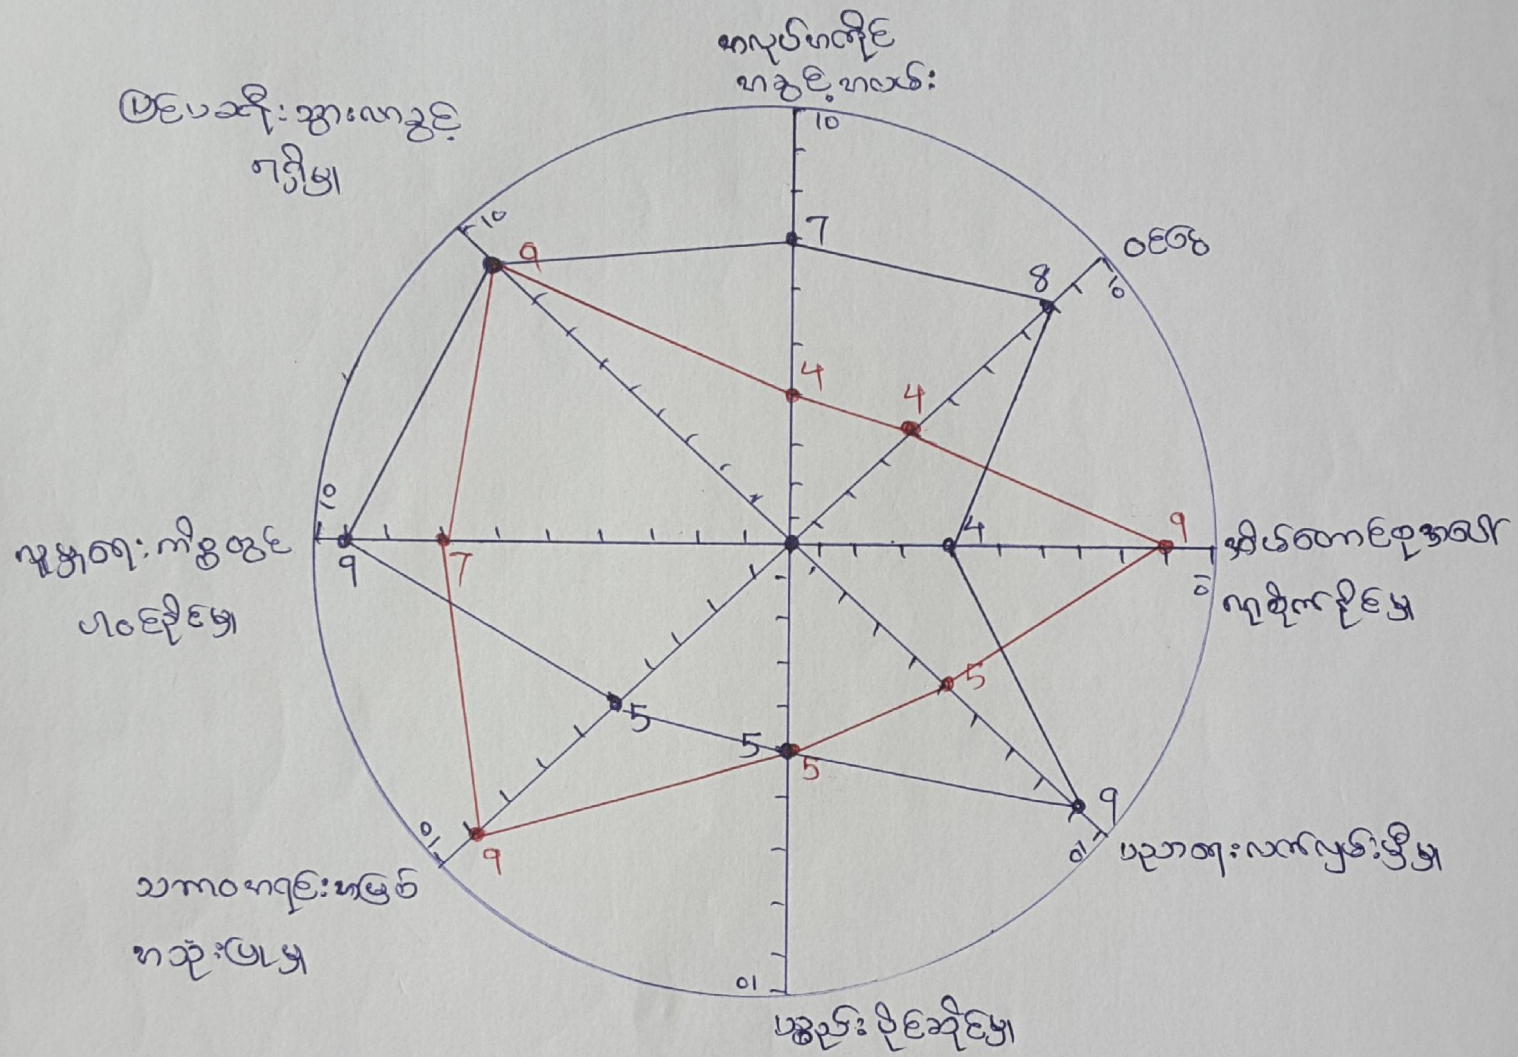 အလုပ်အကိုင်
အခွင့်အလမ်း
10
7
ဝင်ငွေ
10
8
4
4
မိသားစုအပေါ်
လုံလောက်နိုင်မှု
10
4
9
ပညာရေးလက်လှမ်းမှီမှု
10
9
5
ပစ္စည်းပိုင်ဆိုင်မှု
10
5
5
သဘာဝအရင်းအမြစ်
အသုံးပြုမှု
10
5
9
လူမှုရေးကိစ္စတွင်
ပါဝင်နိုင်မှု
10
9
7
မြင်ပခရီးသွားလာခွင့်
ရရှိမှု
10
9